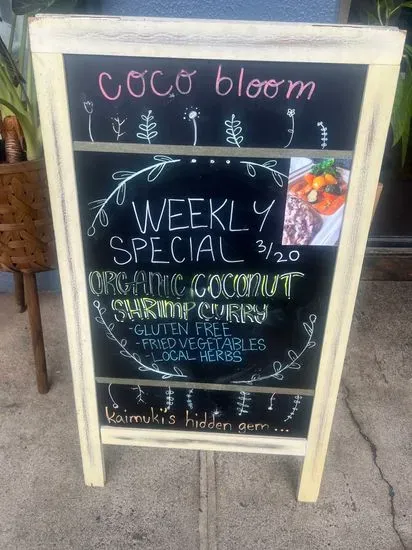 coco bloom
WEEKLY
SPECIAL 3/20
ORGANIC COCONUT
SHRIMP CURRY
-GLUTEN FREE
-FRIED VEGETABLES
-LOCAL HERBS
Kaimuki's hidden gem...